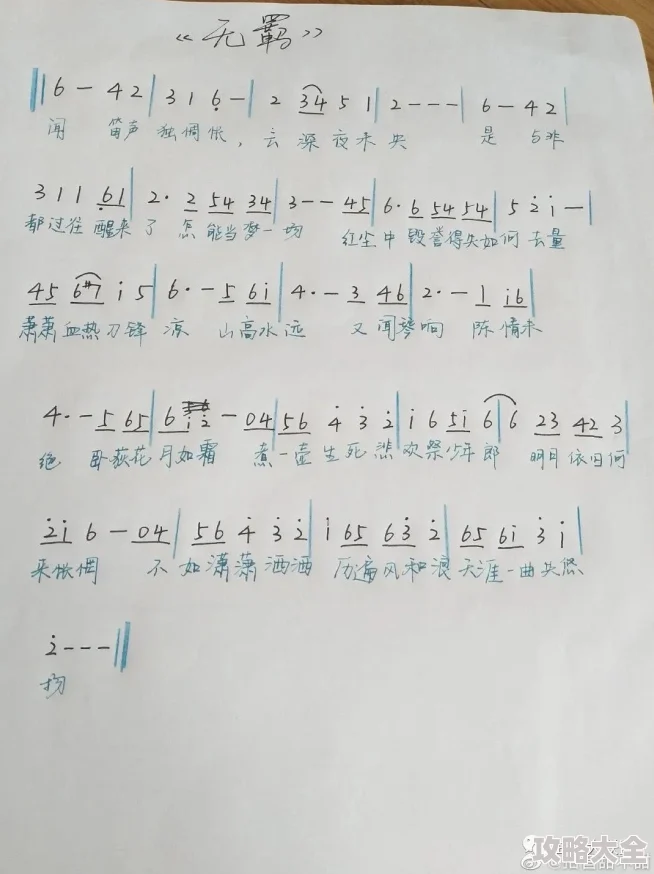 《无羁》
6 - 4 2 | 3 1 6̣ - | 2 34 5 1 | 2 - - - | 6 - 4 2 |
闻 笛声 独惆怅，云深夜未央 是与非
3 1 1 6̣1 | 2· 2 54 34 | 3 - - 45 | 6· 6 54 54 | 5 2̇ 1̇ - |
都过往 醒来了 怎能当梦一场 红尘中 毁誉得失如何去量
45 6#7 1̇ 5 | 6· - 5 61̇ | 4· - 3 46 | 2· - 1 1̇6 |
萧萧血热刀锋凉 山高水远 又闻琴响 陈情未
4· - 5 65 | 6 1̇2̇ - 04 | 56 4̇ 3̇ 2̇ | 1̇ 6 51̇ 6 | 6 23 42 3 |
绝 卧荻花月如霜 煮一壶生死悲欢祭少年郎 明月依旧何
2̇1̇ 6 - 04 | 56 4̇ 3̇ 2̇ | 1̇ 65 63̇ 2̇ | 65 61̇ 3̇ 1̇ |
来怅惘 不如潇潇洒洒 历遍风和浪 天涯一曲共悠
2̇ - - - ‖
扬
攻略大全